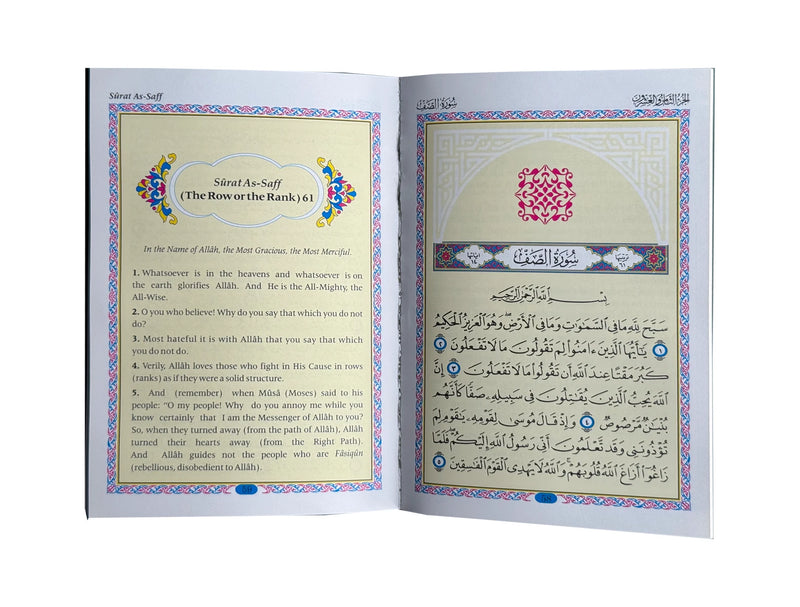 Sûrat As-Saff
Sûrat As-Saff
(The Row or the Rank) 61
In the Name of Allâh, the Most Gracious, the Most Merciful.
1. Whatsoever is in the heavens and whatsoever is on
the earth glorifies Allâh. And He is the All-Mighty, the
All-Wise.
2. O you who believe! Why do you say that which you do not
do?
3. Most hateful it is with Allâh that you say that which
you do not do.
4. Verily, Allâh loves those who fight in His Cause in rows
(ranks) as if they were a solid structure.
5. And (remember) when Mûsâ (Moses) said to his
people: “O my people! Why do you annoy me while you
know certainly that I am the Messenger of Allâh to you?
So, when they turned away (from the path of Allâh), Allâh
turned their hearts away (from the Right Path).
And Allâh guides not the people who are Fâsiqûn
(rebellious, disobedient to Allâh).
سُورَةُ الصَّفِّ
الجزء الثامن والعشرون
ترتيبها ٦١
سُورَةُ الصَّفِّ
آياتها ١٤
بِسْمِ اللَّهِ الرَّحْمَٰنِ الرَّحِيمِ
سَبَّحَ لِلَّهِ مَا فِي السَّمَٰوَٰتِ وَمَا فِي الْأَرْضِ وَهُوَ الْعَزِيزُ الْحَكِيمُ
١ يَٰٓأَيُّهَا الَّذِينَ ءَامَنُوا لِمَ تَقُولُونَ مَا لَا تَفْعَلُونَ ٢
كَبُرَ مَقْتًا عِندَ اللَّهِ أَن تَقُولُوا مَا لَا تَفْعَلُونَ ٣ إِنَّ
اللَّهَ يُحِبُّ الَّذِينَ يُقَٰتِلُونَ فِي سَبِيلِهِ صَفًّا كَأَنَّهُم
بُنْيَٰنٌ مَّرْصُوصٌ ٤ وَإِذْ قَالَ مُوسَىٰ لِقَوْمِهِ يَٰقَوْمِ لِمَ
تُؤْذُونَنِي وَقَد تَّعْلَمُونَ أَنِّي رَسُولُ اللَّهِ إِلَيْكُمْ فَلَمَّا
زَاغُوٓا أَزَاغَ اللَّهُ قُلُوبَهُمْ وَاللَّهُ لَا يَهْدِي الْقَوْمَ الْفَٰسِقِينَ ٥